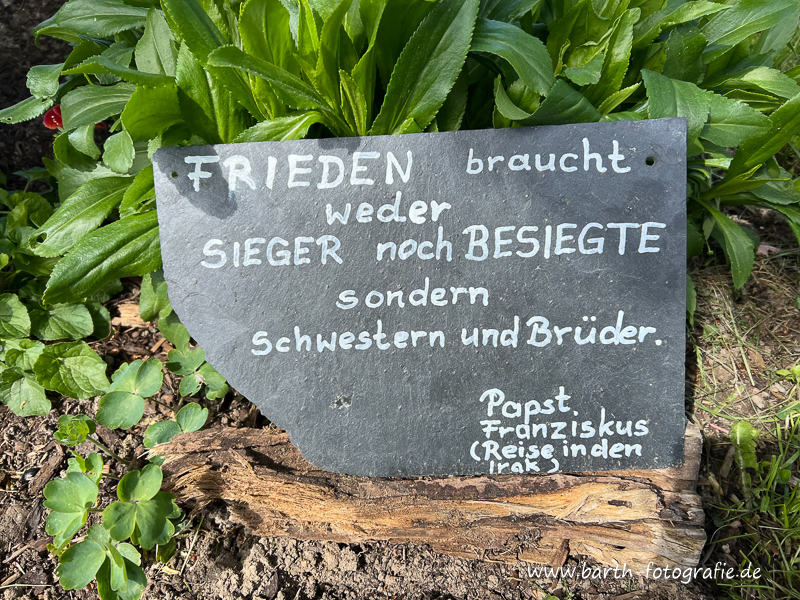 FRIEDEN braucht
weder
SIEGER noch BESIEGTE
sondern
Schwestern und Brüder.
Papst.
Franziskus
(Reise in den
Irak)
www.barth-fotografie.de